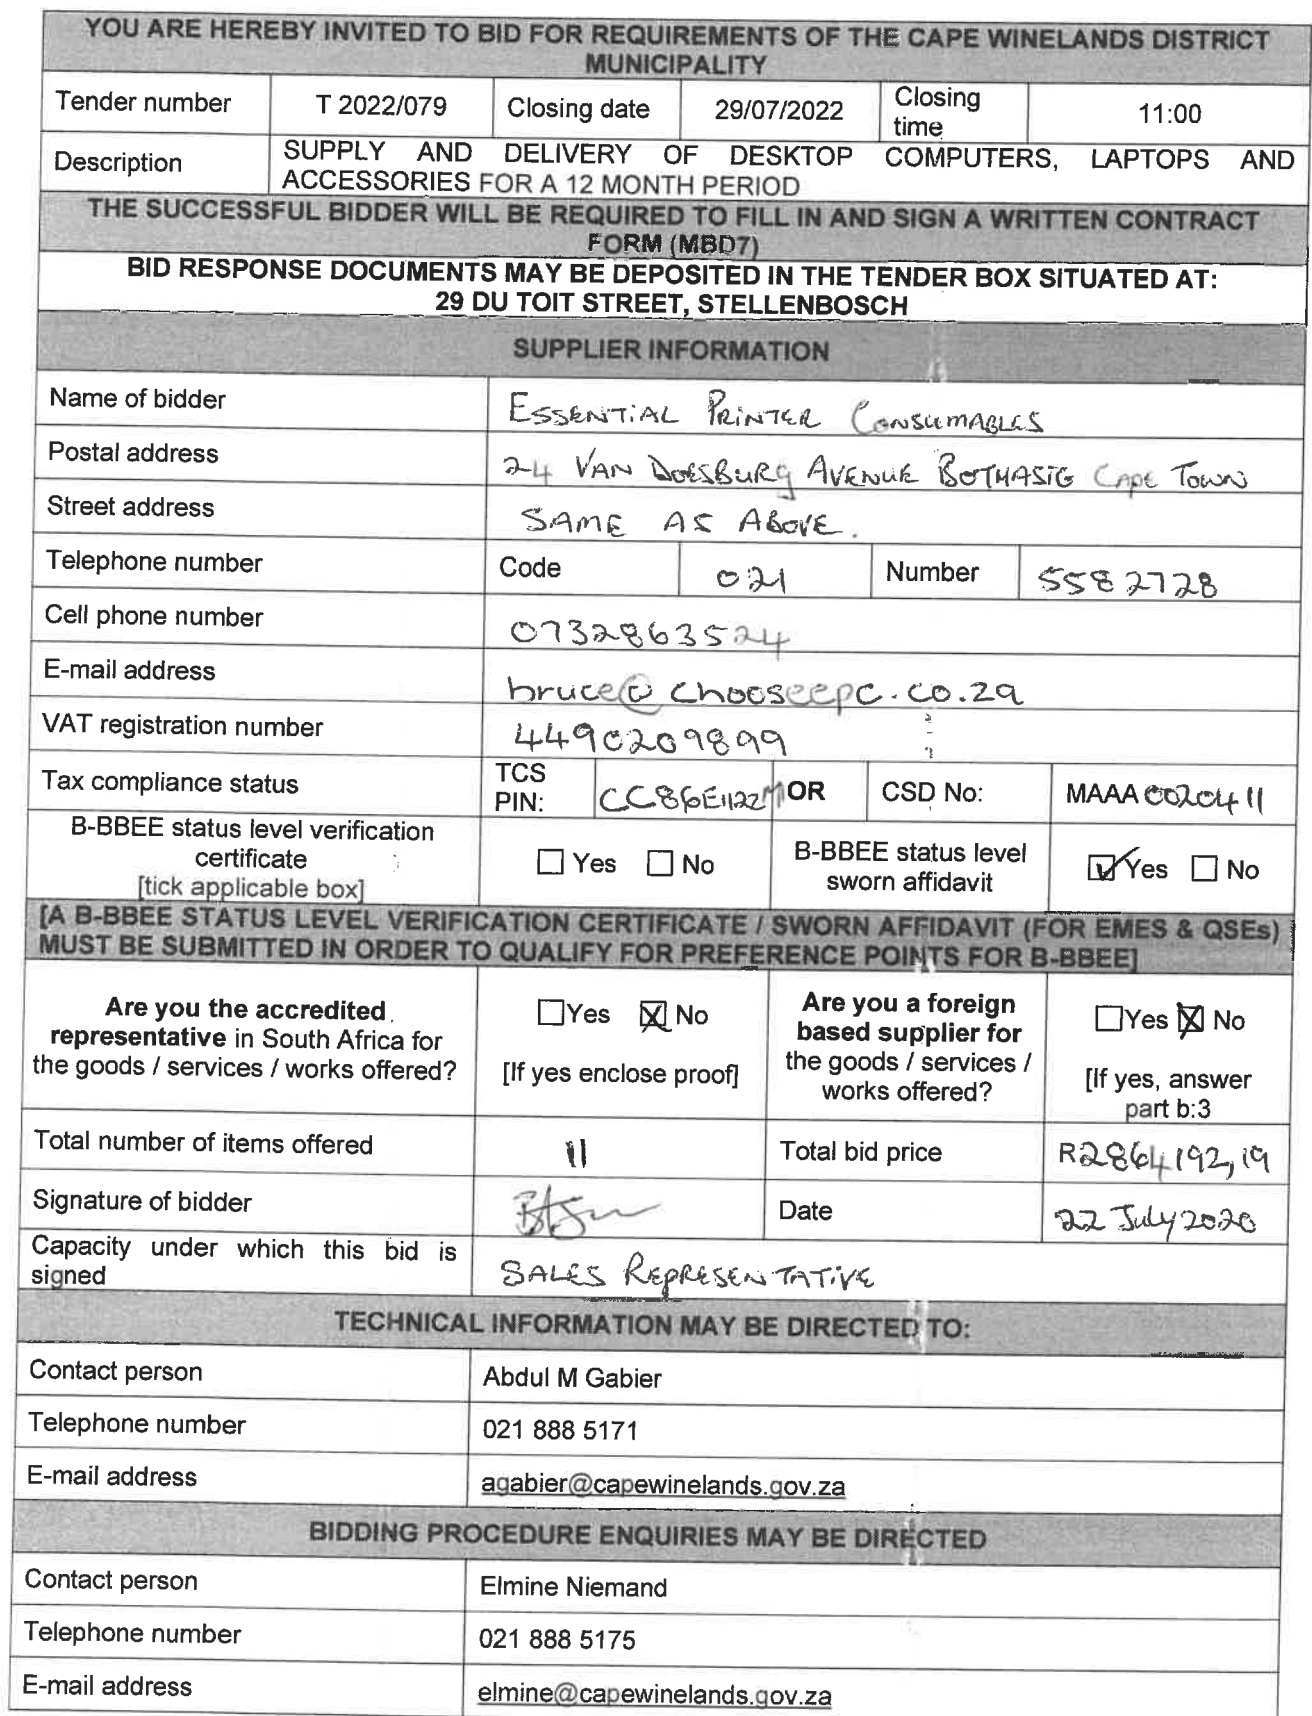 YOU ARE HEREBY INVITED TO BID FOR REQUIREMENTS OF THE CAPE WINELANDS DISTRICT
MUNICIPALITY
Tender number T 2022/079 Closing date 29/07/2022 Closing time 11:00
Description SUPPLY AND DELIVERY OF DESKTOP COMPUTERS, LAPTOPS AND
ACCESSORIES FOR A 12 MONTH PERIOD
THE SUCCESSFUL BIDDER WILL BE REQUIRED TO FILL IN AND SIGN A WRITTEN CONTRACT
FORM (MBD7)
BID RESPONSE DOCUMENTS MAY BE DEPOSITED IN THE TENDER BOX SITUATED AT:
29 DU TOIT STREET, STELLENBOSCH
SUPPLIER INFORMATION
Name of bidder ESSENTIAL PRINTER CONSUMABLES
Postal address 24 VAN DOESBURG AVENUE BOTHASIG CAPE TOWN
Street address SAME AS ABOVE.
Telephone number Code 021 Number 5582728
Cell phone number 0732863524
E-mail address bruce@chooseepc.co.za
VAT registration number 4490209899
Tax compliance status TCS PIN: OR CSD No: MAAA 0020411
B-BBEE status level verification
certificate
[tick applicable box]
Yes No
B-BBEE status level
sworn affidavit
Yes No
[A B-BBEE STATUS LEVEL VERIFICATION CERTIFICATE / SWORN AFFIDAVIT (FOR EMES & QSEs)
MUST BE SUBMITTED IN ORDER TO QUALIFY FOR PREFERENCE POINTS FOR B-BBEE]
Are you the accredited
representative in South Africa for
the goods / services / works offered?
Yes No
[If yes enclose proof]
Are you a foreign
based supplier for
the goods / services /
works offered?
Yes No
[If yes, answer
part b:3
Total number of items offered 11 Total bid price R2864192,19
Signature of bidder Date 22 July 2020
Capacity under which this bid is
signed
SALES REPRESENTATIVE
TECHNICAL INFORMATION MAY BE DIRECTED TO:
Contact person Abdul M Gabier
Telephone number 021 888 5171
E-mail address agabier@capewinelands.gov.za
BIDDING PROCEDURE ENQUIRIES MAY BE DIRECTED
Contact person Elmine Niemand
Telephone number 021 888 5175
E-mail address elmine@capewinelands.gov.za